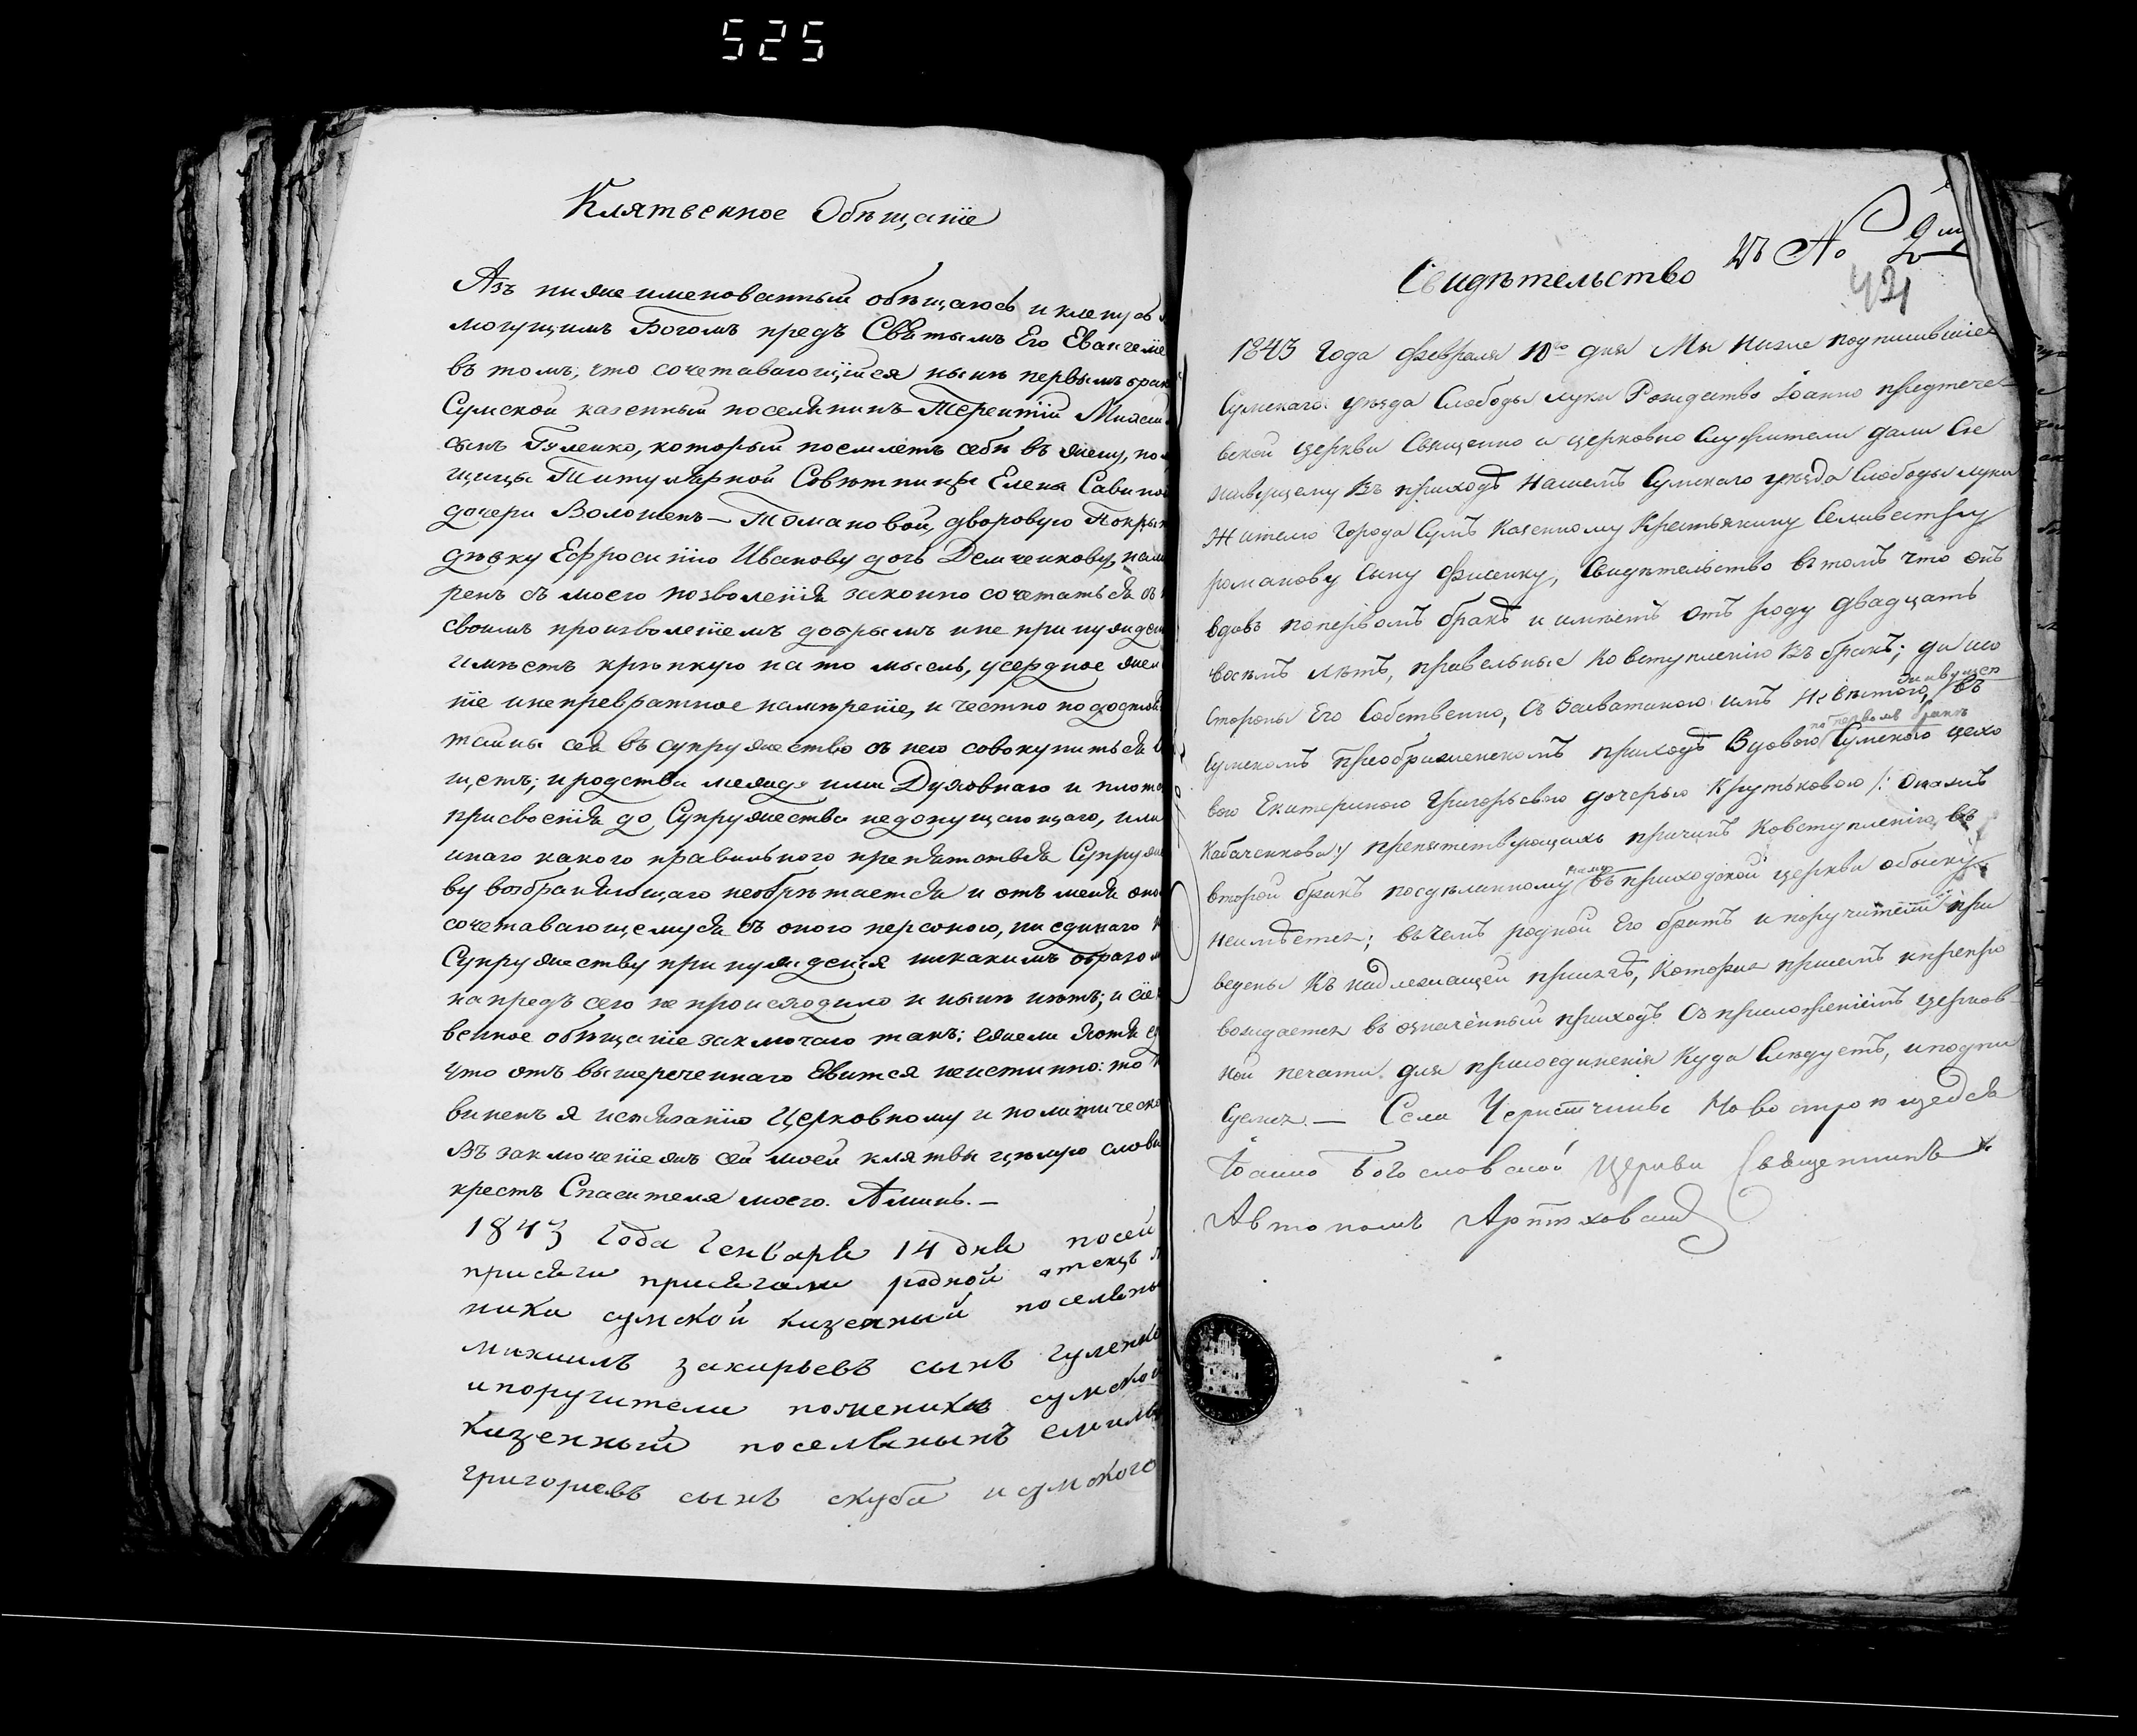 525
Клятвенное Обѣщаніе
Азъ нижеименованный обѣщаюсь и кленусь
могущимъ Богомъ предъ Святымъ Его Евангеліе
въ томъ, что сочетавающійся нынѣ первымъ брак
Сумской казенный поселянинъ Терентій
сынъ Гуленко, который поемлетъ себѣ въ жену, по
щицы Титулярной Совѣтницы Елены Савиной
дочери Волошен— Томановой, дворовую
дѣвку Ефросинію Иванову дочь Демченкову, намѣ
ренъ съ моего позволенія законно сочетаться съ
своимъ произволеніемъ добрымъ и не принужден
имѣетъ крѣпкую на то мысль, усердное жела
ніе и непревратное намѣреніе, и честно по достои
тайны сея въ супружество съ нею совокупиться
щетъ; и родства между ими Духовнаго и плот
присвоенія до Супружества недопущающаго, или
инаго какого правильного препятствія Супруже
ву возбраняющаго необрѣтается и отъ меня
сочетавающемуся съ оною персоною, ни единаго
Супружеству принужденія никакимъ образом
на предъ сего не происходило и нынѣ нѣтъ; и сіе
венное обѣщаніе заключаю такъ: ежели хотя
что отъ вышереченнаго явится неистинно: то
виненъ я истязанію Церковному и политическ
Въ заключеніе жъ сей моей клятвы цѣлую слова
крестъ Спасителя моего. Аминь.—
1843 Года Генваря 14 дня посей
присяги присягали родной отецъ
ника сумской казенный поселянин
михаилъ захарьевъ сынъ гуленко
и поручители поженихѣ сумской
казенный поселянинъ
григорьевъ сынъ скуба и сумского
къ №
42
Свидѣтельство
1843 Года Февраля 10го дня Мы Ниже подписавшіе
Сумскаго уѣзда Слободы луки Рождество Іоанно предтече-
вской церкви Священно и церковно Служители дали Сіе
живущему Въ приходѣ Нашемъ Сумскаго уѣзда Слободы луки
Жителю Города Сумъ Казенному Крестьянину Селиверстру
романову Сыну Фисенку, Свидѣтельство въ томъ что онъ
вдовъ попервомъ бракѣ и имѣетъ отъ роду двадцать
восемъ лѣтъ, правельные ко вступленію Въ бракъ;
живущею
стороны Его Собственно, Съ Засватаною имъ Невѣстою, въ
по первомъ бракѣ
Сумскомъ Преображенскомъ приходѣ Вдовою Сумского цехо
вого Екатериною Григорьевою дочерью Крутьковою /:
Кабаченкова:/ препятствующихъ причинъ Ковступленію въ
нами
второй бракъ посдѣланному въ приходской церкви обыску
Неимѣется; въ чемъ родной Его братъ и поручители при
ведены Къ надлежащей присягѣ, Которые присемъ и препро
вождается въ означенный приходъ Съ приложеніемъ церков-
ной печати для присоединенія Куда Слѣдуетъ, и подпи
суемся.— Села
Іоанно Богословской Церкви Священникъ
Автономъ